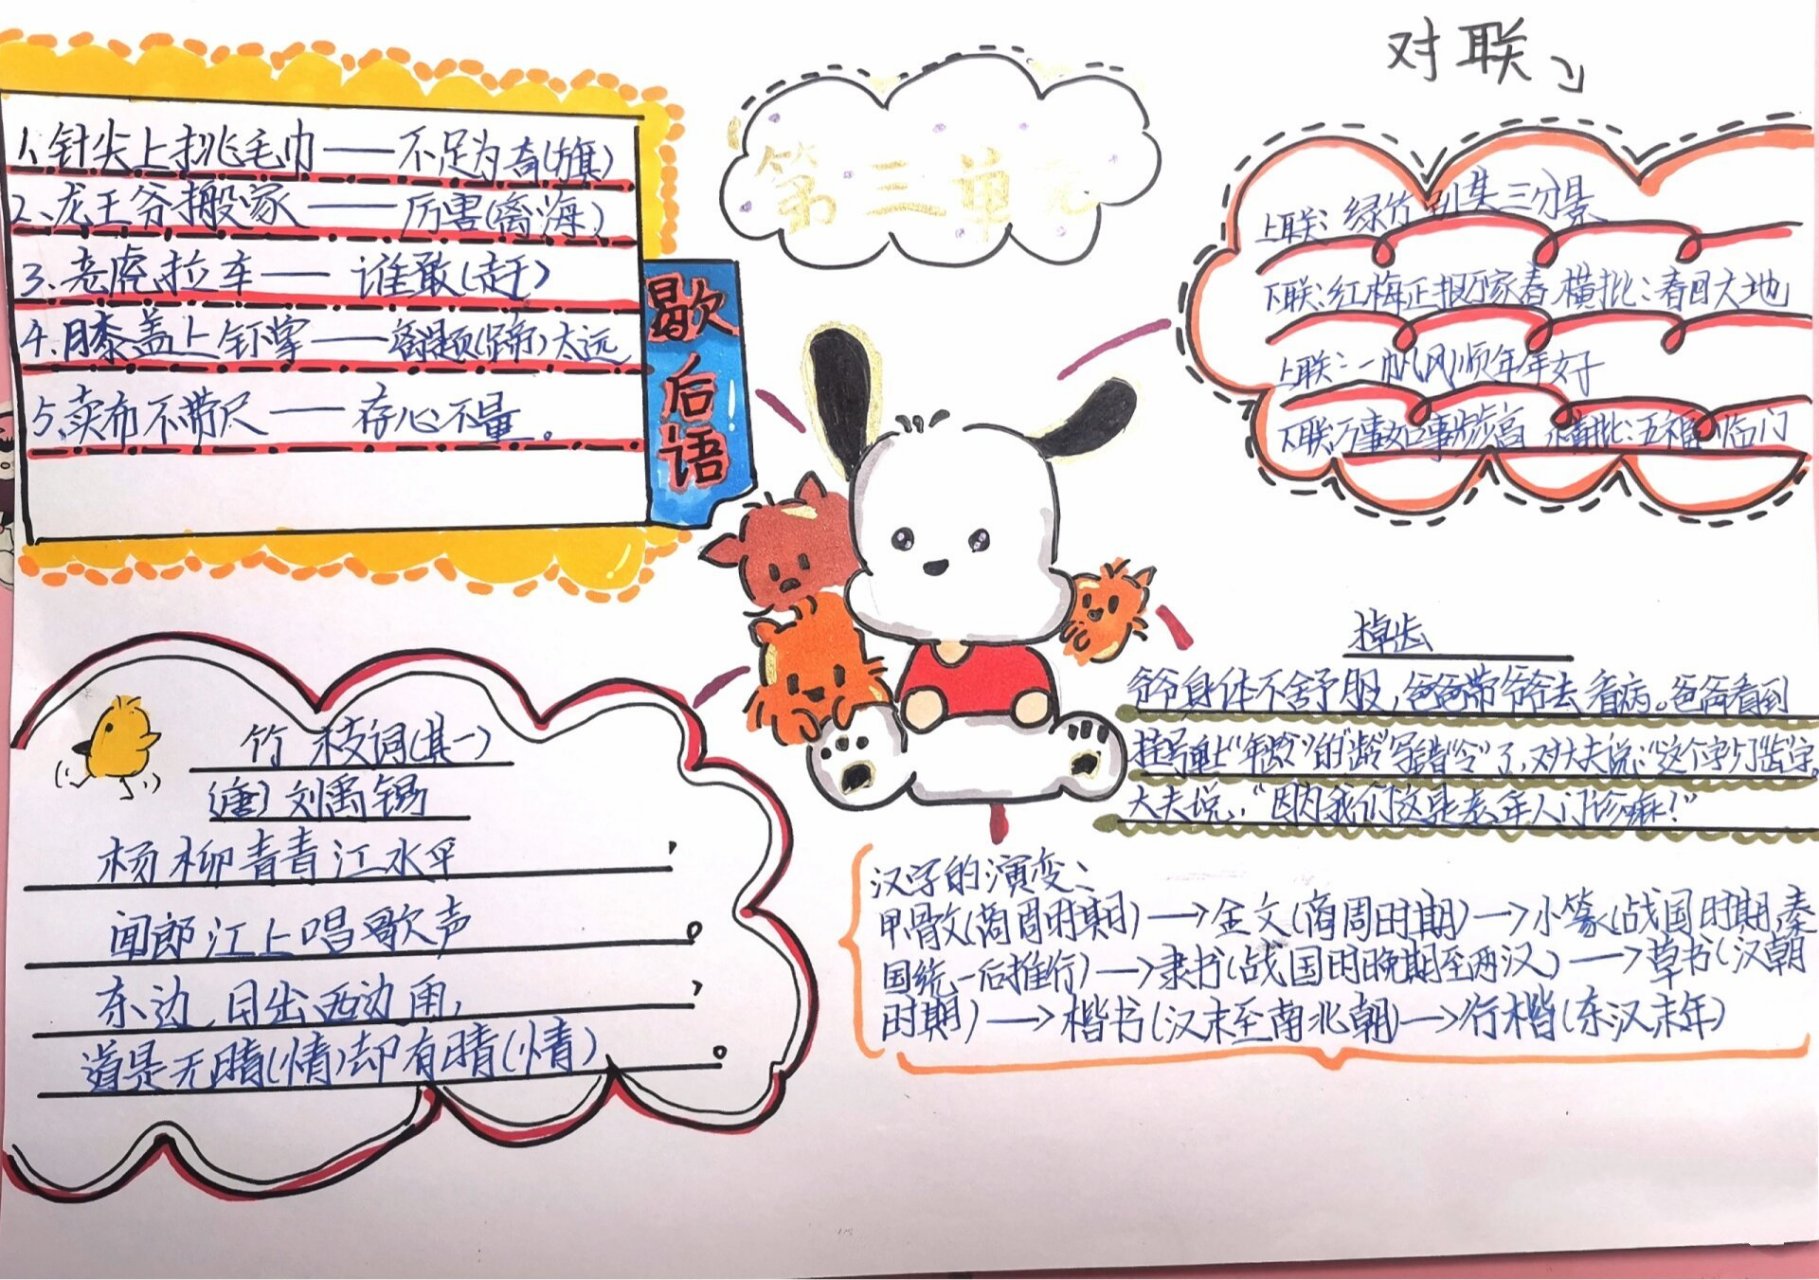 第三单元
1、针尖上挑毛巾——不足为奇(旗)
2、龙王爷搬家——厉害(离海)
3、老虎拉车——谁敢(赶)
4、膝盖上钉掌——离题(蹄)太远
5、卖布不带尺——存心不量。
歇后语
对联
上联：绿竹别其三分景
下联：红梅正报万家春 横批：春回大地
上联：一帆风顺年年好
下联：万事如事步步高 横批：五福临门
竹枝词(其一)
(唐)刘禹锡
杨柳青青江水平，
闻郎江上唱歌声。
东边日出西边雨，
道是无晴(情)却有晴(情)。
掉齿
爷爷身体不舒服，爸爸带爷爷去看病。爸爸看到
挂号单上“年龄”的“龄”写错“令”了，对大夫说：“这个字少齿字
大夫说：“因为我们这是老年人门诊嘛！”
汉字的演变：
甲骨文(商周时期)→金文(商周时期)→小篆(战国时期,秦
国统一后推行)→隶书(战国时晚期至两汉)→草书(汉朝
时期)→楷书(汉末至南北朝)→行楷(东汉末年)